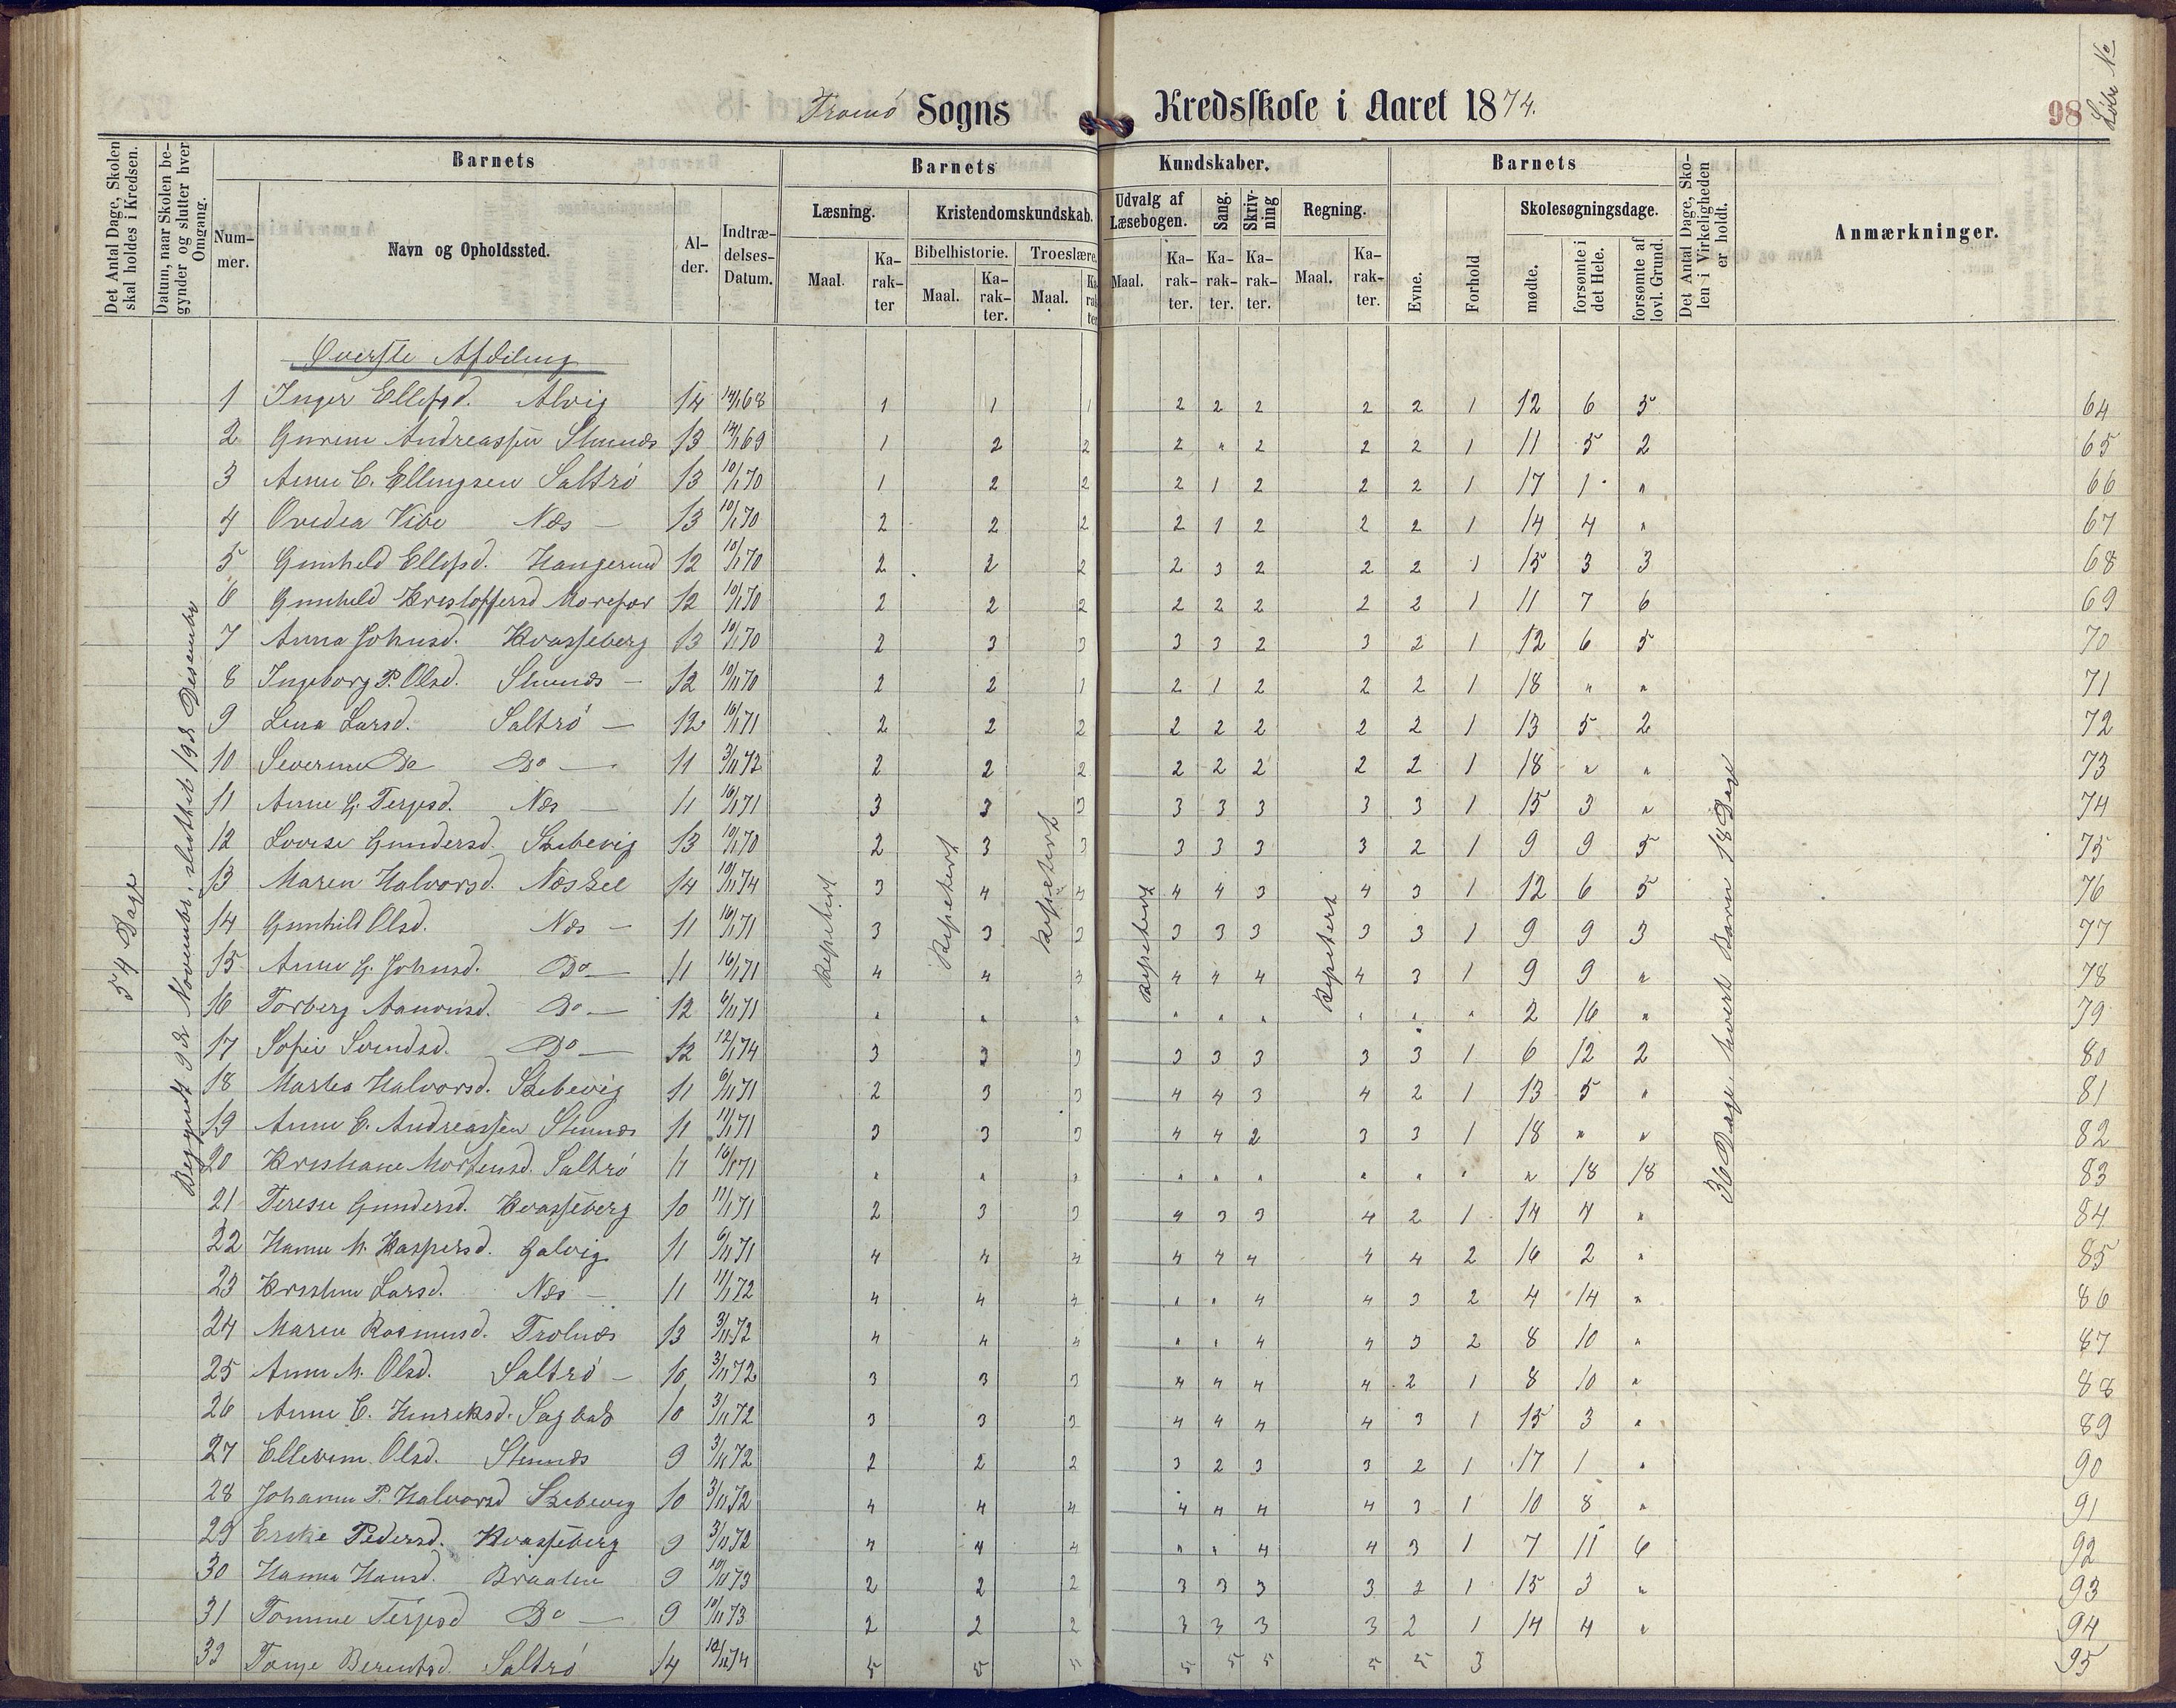 Tromö Sogns Kredsskole i Aaret 1874.
98
Løbe No
Det Antal Dage, Skolen skal holdes i Kredsen.
Datum, naar Skolen begynder og slutter hver Omgang.
Barnets
Barnets Kundskaber.
Barnets
Det Antal Dage, Skolen i Virkeligheden er holdt.
Anmærkninger.
Nummer.
Navn og Opholdssted.
Alder.
Indtrædelses-Datum.
Læsning.
Kristendomskundskab.
Udvalg af Læsebogen.
Sang.
Skrivning
Regning.
Evne.
Forhold
Skolesøgningsdage.
Bibelhistorie.
Troeslære.
Maal.
Karakter
Maal.
Karakter.
Maal.
Karakter
Maal.
Karakter.
Karakter.
Karakter.
Maal.
Karakter.
mødte.
forsømte i det Hele.
forsømte af lovl. Grund.
54 Dage
Begyndt 9de November, sluttet 19de Desember
Repetert
Repetert
Repetert
Repetert
Repetert
36 Dage hvert Barn 18 Dage
Øverste Afdeling
1 Inger Ellefsd. Alvig 14 68 1 1 1 2 2 2 2 2 1 12 6 5 64
2 Gurine Andreassen Stunæs 13 69 1 2 2 2 " 2 2 2 1 11 5 2 65
3 Anne C. Ellingsen Saltrö 13 10/1 70 1 2 2 2 1 2 2 2 1 17 1 " 66
4 Ovedia Vibe Næs - 13 10/1 70 2 2 2 2 1 2 2 2 1 14 4 " 67
5 Gunhild Ellefsd. Haugerud 12 10/1 70 2 2 2 2 3 2 2 2 1 15 3 3 68
6 Gunhild Kristoffersd Morefær 12 10/1 70 2 2 2 2 2 2 2 2 1 11 7 6 69
7 Anna Johnsd. Kvasseberg 13 10/1 70 2 3 3 3 3 2 3 2 1 12 6 5 70
8 Ingeborg P. Olsd. Stunæs - 12 10/11 70 2 2 1 2 1 2 2 2 1 18 " " 71
9 Lina Larsd. Saltrö - 12 16/1 71 2 2 2 2 2 2 2 2 1 13 5 2 72
10 Severine Do Do - 11 3/11 72 2 2 2 2 2 2 2 2 1 18 " " 73
11 Anne G. Terjesd. Næs - 11 16/1 71 3 3 3 3 3 3 3 3 1 15 3 " 74
12 Lovise Gundersd. Skibevig 13 10/1 70 2 3 3 3 3 3 3 2 1 9 9 5 75
13 Maren Halvorsd. Næskil 14 10/11 74 3 4 4 4 4 3 4 3 1 12 6 5 76
14 Gunhild Olsd. Næs - 11 16/1 71 3 3 3 3 3 3 3 3 1 9 9 3 77
15 Anne G. Johnsd. Do - 11 16/1 71 4 4 3 4 4 4 4 3 1 9 9 " 78
16 Torberg Aanonsd. Do - 12 6/11 71 " " " " " " " " " 2 16 " 79
17 Sofie Svendsd. Do - 12 12/1 74 3 3 3 3 3 3 3 3 1 6 12 2 80
18 Martea Halvorsd. Skibevig 11 6/11 71 2 3 3 4 4 3 4 2 1 13 5 " 81
19 Anne C. Andreassen Stunæs 11 11/1 71 3 3 3 4 4 2 3 3 1 18 " " 82
20 Kristiane Mortensd. Saltrö 11 16/1 71 " " " " " " " " " " 18 18 83
21 Terese Gundersd. Kvasseberg 10 11/1 71 2 3 3 4 3 3 4 2 1 14 4 " 84
22 Hanne M. Kaspersd. Galvig 11 6/11 71 4 4 4 4 4 4 4 4 2 16 2 " 85
23 Kristine Larsd. Næs - 11 11/1 72 4 4 4 " " 4 4 3 2 4 14 " 86
24 Maren Rasmusd. Trolnæs 13 3/11 72 4 4 4 " " 4 4 3 2 8 10 " 87
25 Anne M. Olsd. Saltrö - 10 3/11 72 3 3 3 4 4 4 4 2 1 8 10 " 88
26 Anne C. Hinriksd. Sagbak 10 3/11 72 3 3 3 4 4 4 4 3 1 15 3 " 89
27 Ellevine Olsd. Stunæs 9 3/11 72 2 2 2 3 2 3 3 2 1 17 1 " 90
28 Johanne P. Halvorsd Skibevig 10 3/11 72 4 4 4 4 4 4 4 3 1 10 8 " 91
29 Pedersd. Kvasseberg 9 3/11 72 4 4 4 " " 4 4 3 1 7 11 6 92
30 Hanna Hansd. Braaten 9 10/11 73 2 2 2 3 3 3 3 2 1 15 3 " 93
31 Tomine Terjesd Do - 9 10/11 73 2 2 2 3 3 3 3 2 1 14 4 " 94
33 Tomje Berentsd. Saltrö 14 74 5 5 5 5 5 5 5 5 3 95